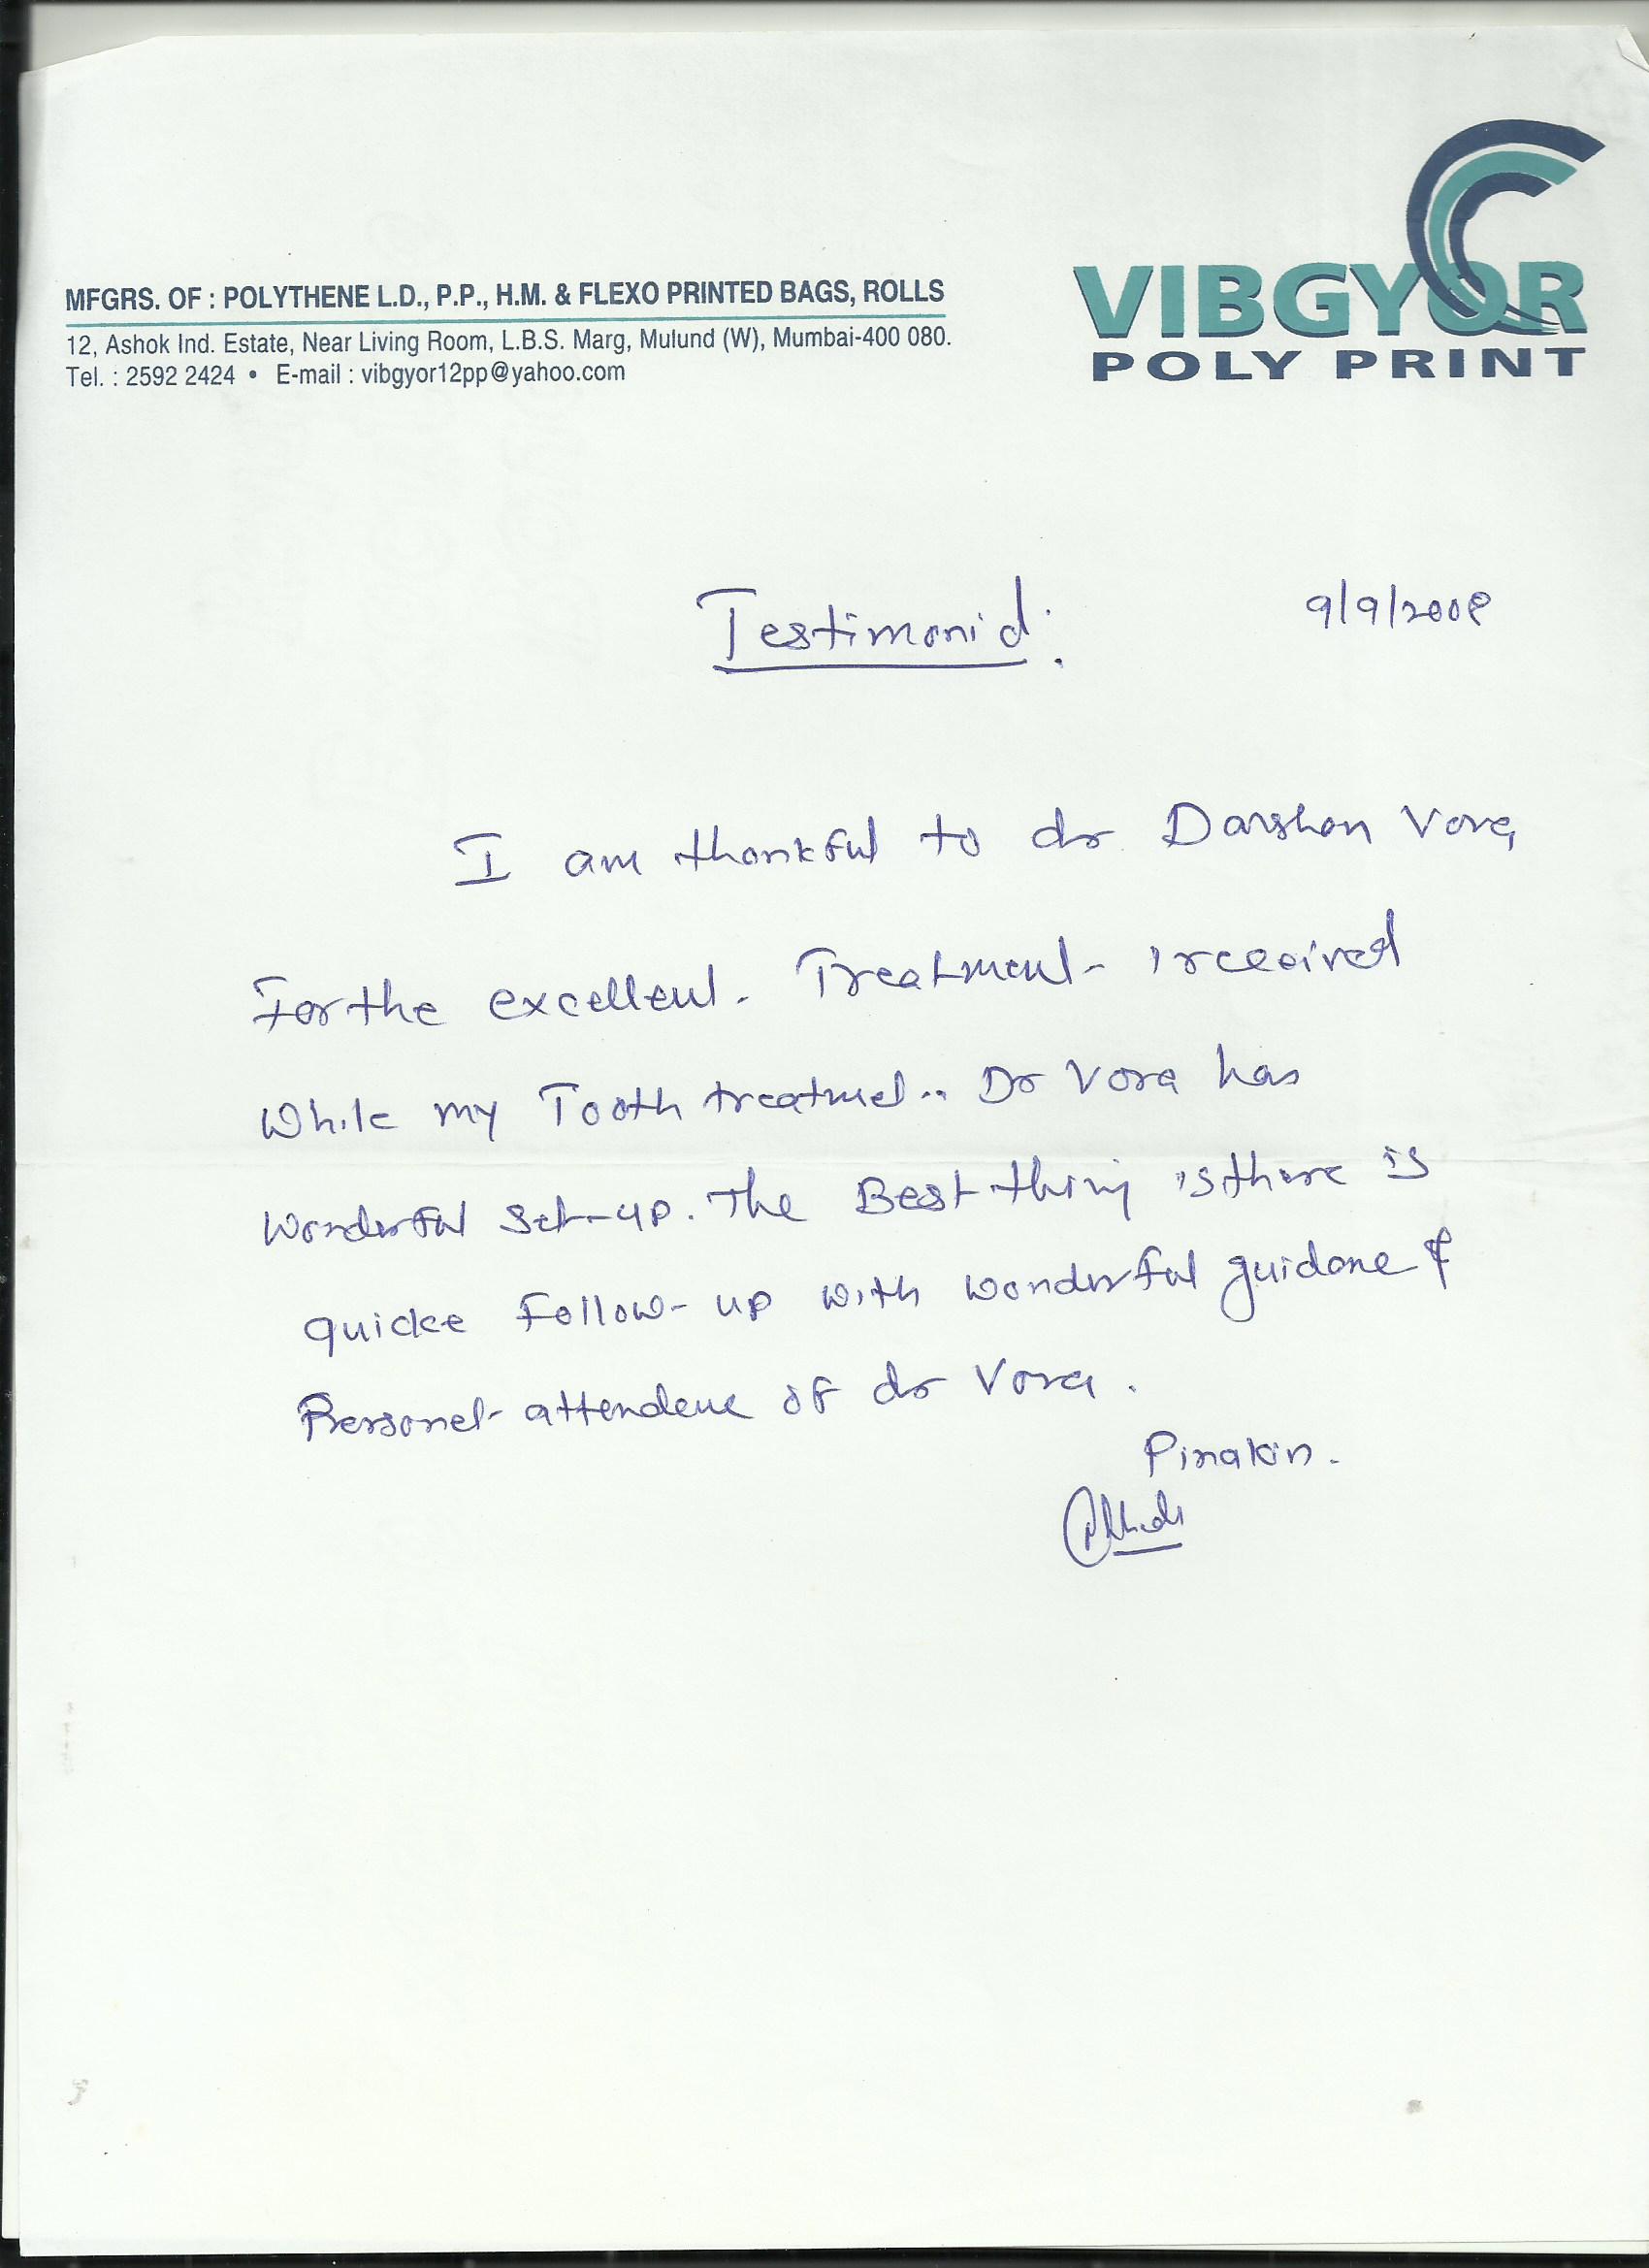 VIBGYOR
POLY PRINT
MFGRS. OF : POLYTHENE L.D., P.P., H.M. & FLEXO PRINTED BAGS, ROLLS
12, Ashok Ind. Estate, Near Living Room, L.B.S. Marg, Mulund (W), Mumbai-400 080.
Tel. : 2592 2424 • E-mail : vibgyor12pp@yahoo.com
Testimonial: 9/9/2008
I am thankful to dr. Darshan Vora,
For the excellent. Treatment - I received
While my Tooth treatment.. Dr Vora has
wonderful set-up. The Best thing is there is
quicke Follow-up with wonderful guidance &
Personel attendence of dr Vora.
Pinakin.